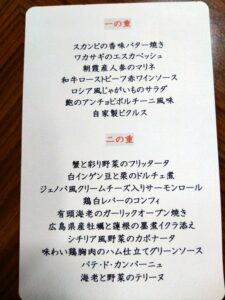 一の重
スカンピの香味バター焼き
ワカサギのエスカベッシュ
朝霞産人参のマリネ
和牛ローストビーフ赤ワインソース
ロシア風じゃがいものサラダ
鮑のアンチョビポルチーニ風味
自家製ピクルス
二の重
蟹と彩り野菜のフリッタータ
白インゲン豆と栗のドルチェ煮
ジェノバ風クリームチーズ入りサーモンロール
鶏白レバーのコンフィ
有頭海老のガーリックオーブン焼き
広島県産牡蠣と蓮根の墨煮イクラ添え
シチリア風野菜のカポナータ
味わい鶏胸肉のハム仕立てグリーンソース
パテ・ド・カンパーニュ
海老と野菜のテリーヌ